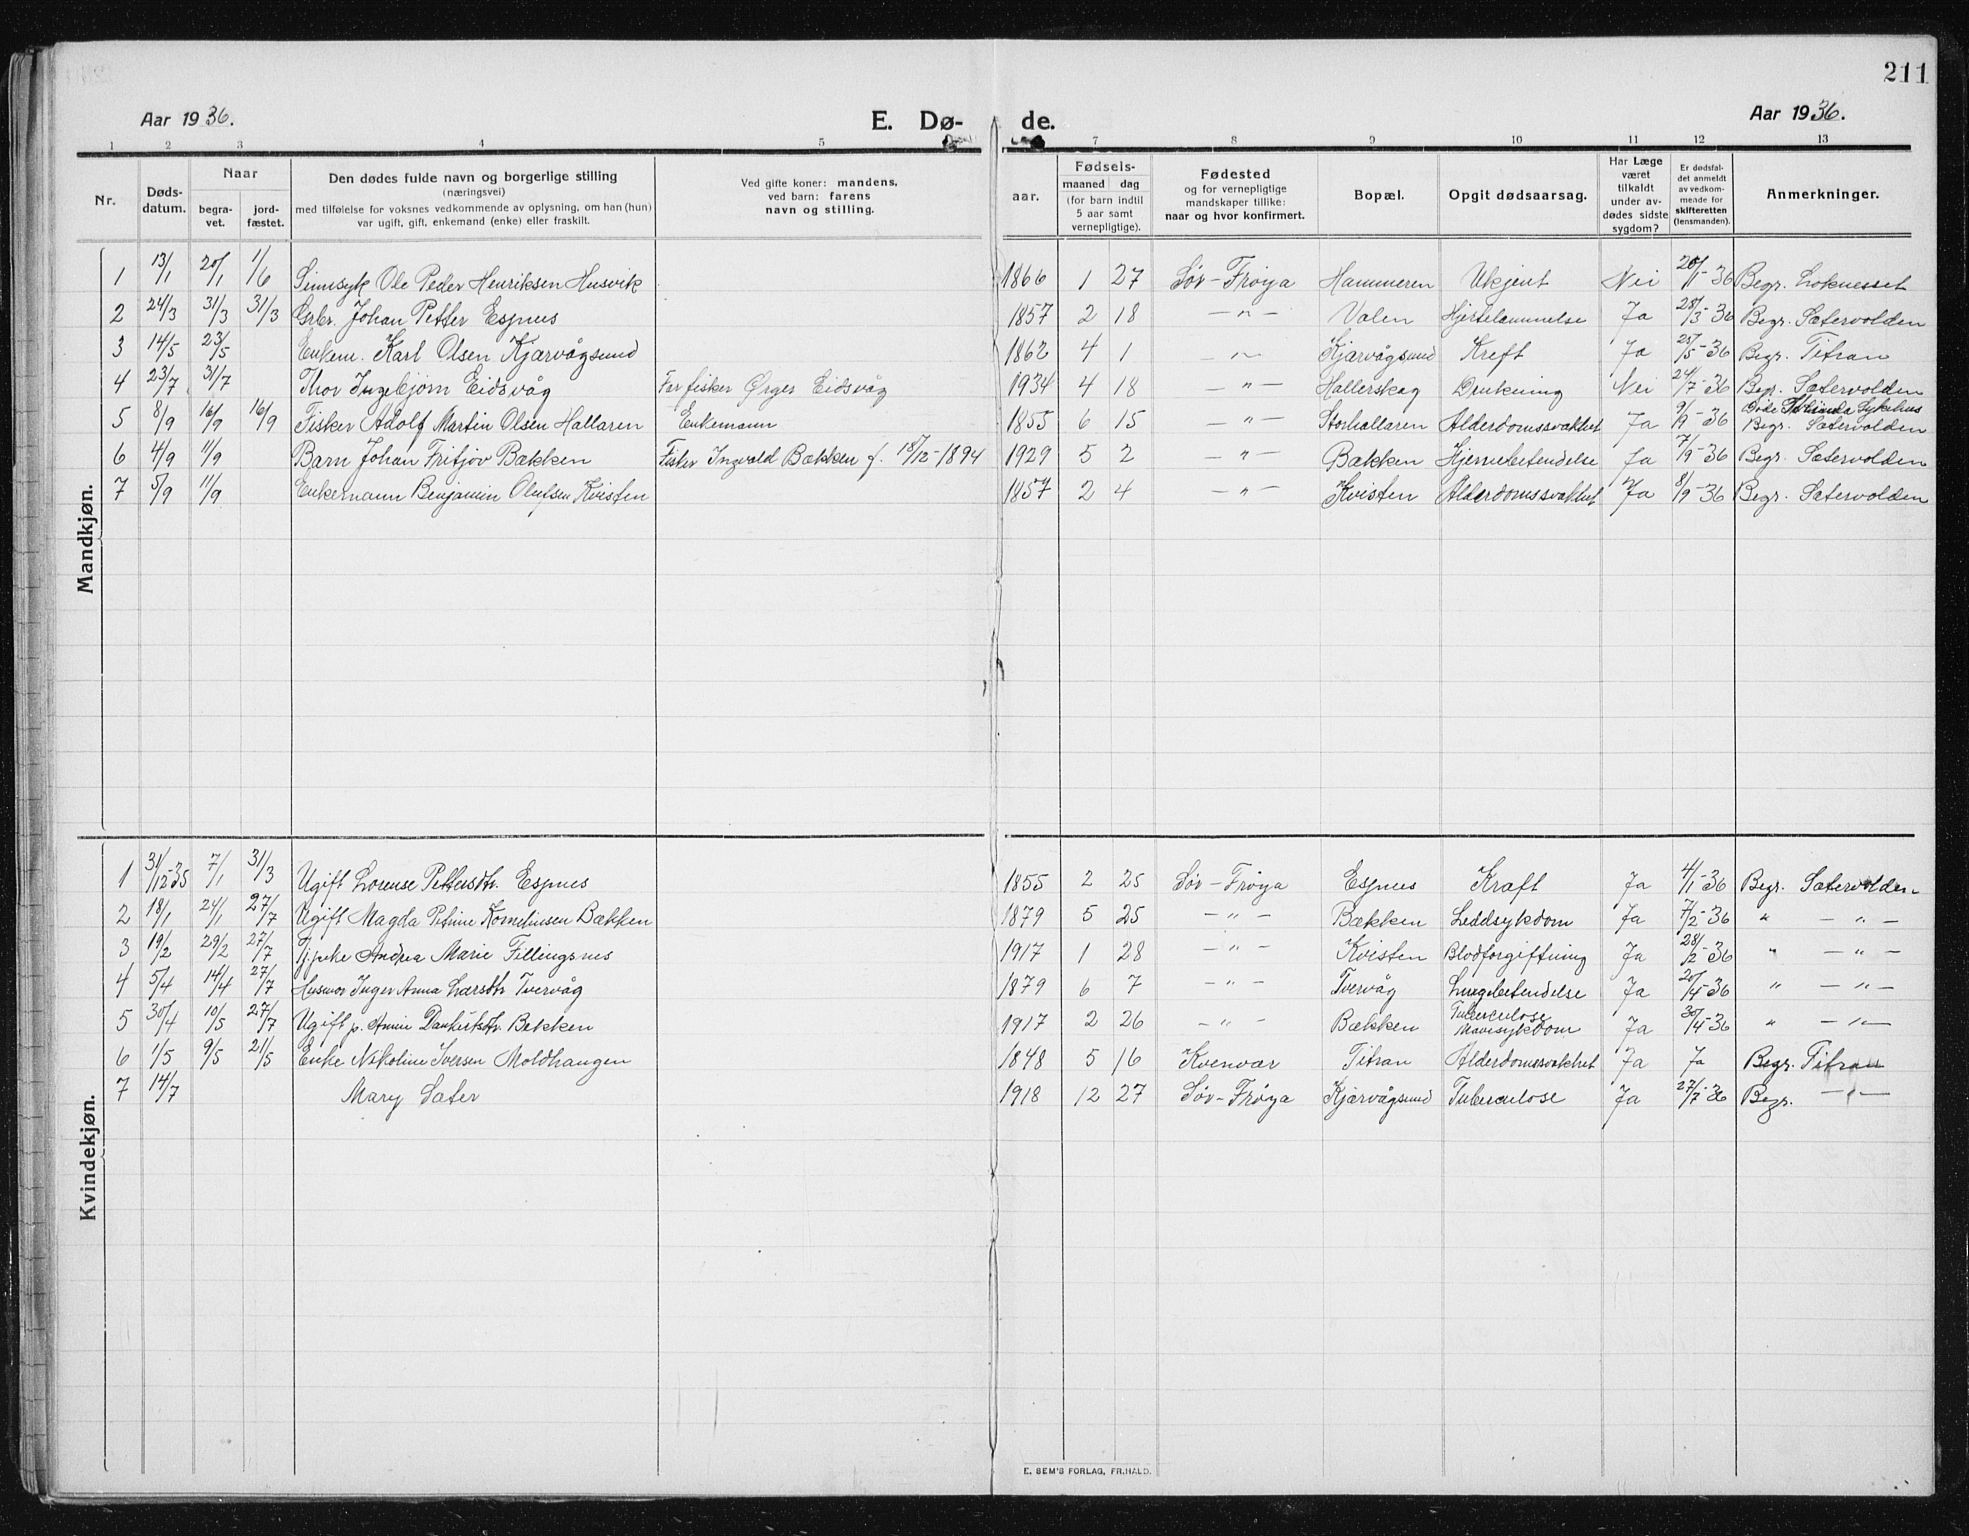 211
Aar 1936. E. Dø- de. Aar 1936.
1 2 3 4 5 7 8 9 10 11 12 13
Nr. Døds-datum. Naar begra-vet. jord-fæstet. Den dødes fulde navn og borgerlige stilling (næringsvei) med tilføielse for voksnes vedkommende av oplysning, om han (hun) var ugift, gift, enkemand (enke) eller fraskilt. Ved gifte koner: mandens, ved barn: farens navn og stilling. aar. Fødsels- maaned dag (for barn indtil 5 aar samt vernepligtige). Fødested og for vernepligtige mandskaper tillike: naar og hvor konfirmert. Bopæl. Opgit dødsaarsag. Har Læge været tilkaldt under av-dødes sidste sygdom? Er dødsfal-det anmeldt av vedkom-mende for skifteretten (lensmanden). Anmerkninger.
Mandkjøn.
1 13/1 20/1 1/6 Sinnsyk Ole Peder Henriksen Husvik 1866 1 27 Sør-Frøya Hammeren Ukjent Nei 20/1-36 Begr. Loknesset
2 24/3 31/3 31/3 Grbr. Johan Petter Espnes 1857 2 18 —"— Valen Hjertelammelse Ja 28/3-36 Begr. Sætervolden
3 14/5 23/5 Enkem. Karl Olsen Kjærvågsund 1862 4 1 —"— Kjærvågsund Kreft Ja 25/5-36 Begr. Titran
4 23/7 31/7 Thor Ingebjørn Eidsvåg Far fisker Ørges Eidsvåg 1934 4 18 —"— Hallerskag Drukning Nei 24/7-36 Begr. Sætervolden
5 8/9 16/9 16/9 Fisker Adolf Martin Olsen Hallaren Enkemann 1855 6 15 —"— Storhallaren Alderdomssvakhet Ja 9/9-36 Døde Strinda Sykehus Begr. Sætervolden
6 4/9 11/9 Barn Johan Fritjov Bækken Fisker Ingvald Bækken f. 18/12-1894 1929 5 2 —"— Bækken Hjernebetendelse Ja 7/9-36 Begr. Sætervolden
7 5/9 11/9 Enkemann Benjamin Olufsen Kvisten 1857 2 4 —"— Kvisten Alderdomssvakhet Ja 8/9-36 Begr. Sætervolden
Kvindekjøn.
1 31/12-35 7/1 31/3 Ugift Lorense Pettersdtr. Espnes 1855 2 25 Sør-Frøya Espnes Kræft Ja 4/1-36 Begr. Sætervolden
2 18/1 24/1 27/7 Ugift Magda Petrine Korneliussen Bækken 1879 5 25 —"— Bækken Leddsykdom Ja 7/2-36 " —"—
3 19/2 29/2 27/7 Tj.pike Andrea Marie Fillingsnes 1917 1 28 —"— Kvisten Blodforgiftning Ja 28/2-36 " —"—
4 5/4 14/4 27/7 Husmor Inger Anna Larsdtr Tvervåg 1879 6 7 —"— Tvervåg Lungebetendelse Ja 20/4-36 " —"—
5 30/4 10/5 27/7 Ugift p. Annie Dankertsdtr. Bekken 1917 2 26 —"— Bækken Tuberculose Mavesykdom Ja 30/4-36 " —"—
6 1/5 9/5 21/5 Enke Nikoline Iversen Moldhaugen 1848 5 16 Kvenvær Titran Alderdomssvakhet Ja Ja Begr. Titran
7 14/7 Mary Sæter 1918 12 27 Sør-Frøya Kjærvågsund Tuberculose Ja 27/7-36 Begr. —"—
E. SEM'S FORLAG, FR.HALD.